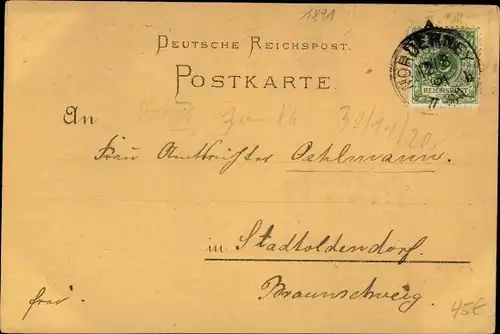 1891
DEUTSCHE REICHSPOST.
POSTKARTE.
NORDERNEY
12/8
91
REICHSPOST
An
30/10/20.
Frau Amtsrichter Oehlmann.
in Stadtoldendorf.
Braunschweig.
frei.
45€